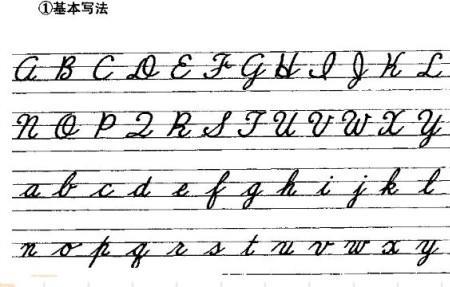 ①基本写法
A B C D E F G H I J K L
N O P Q R S T U V W X Y
a b c d e f g h i j k l
n o p q r s t u v w x y